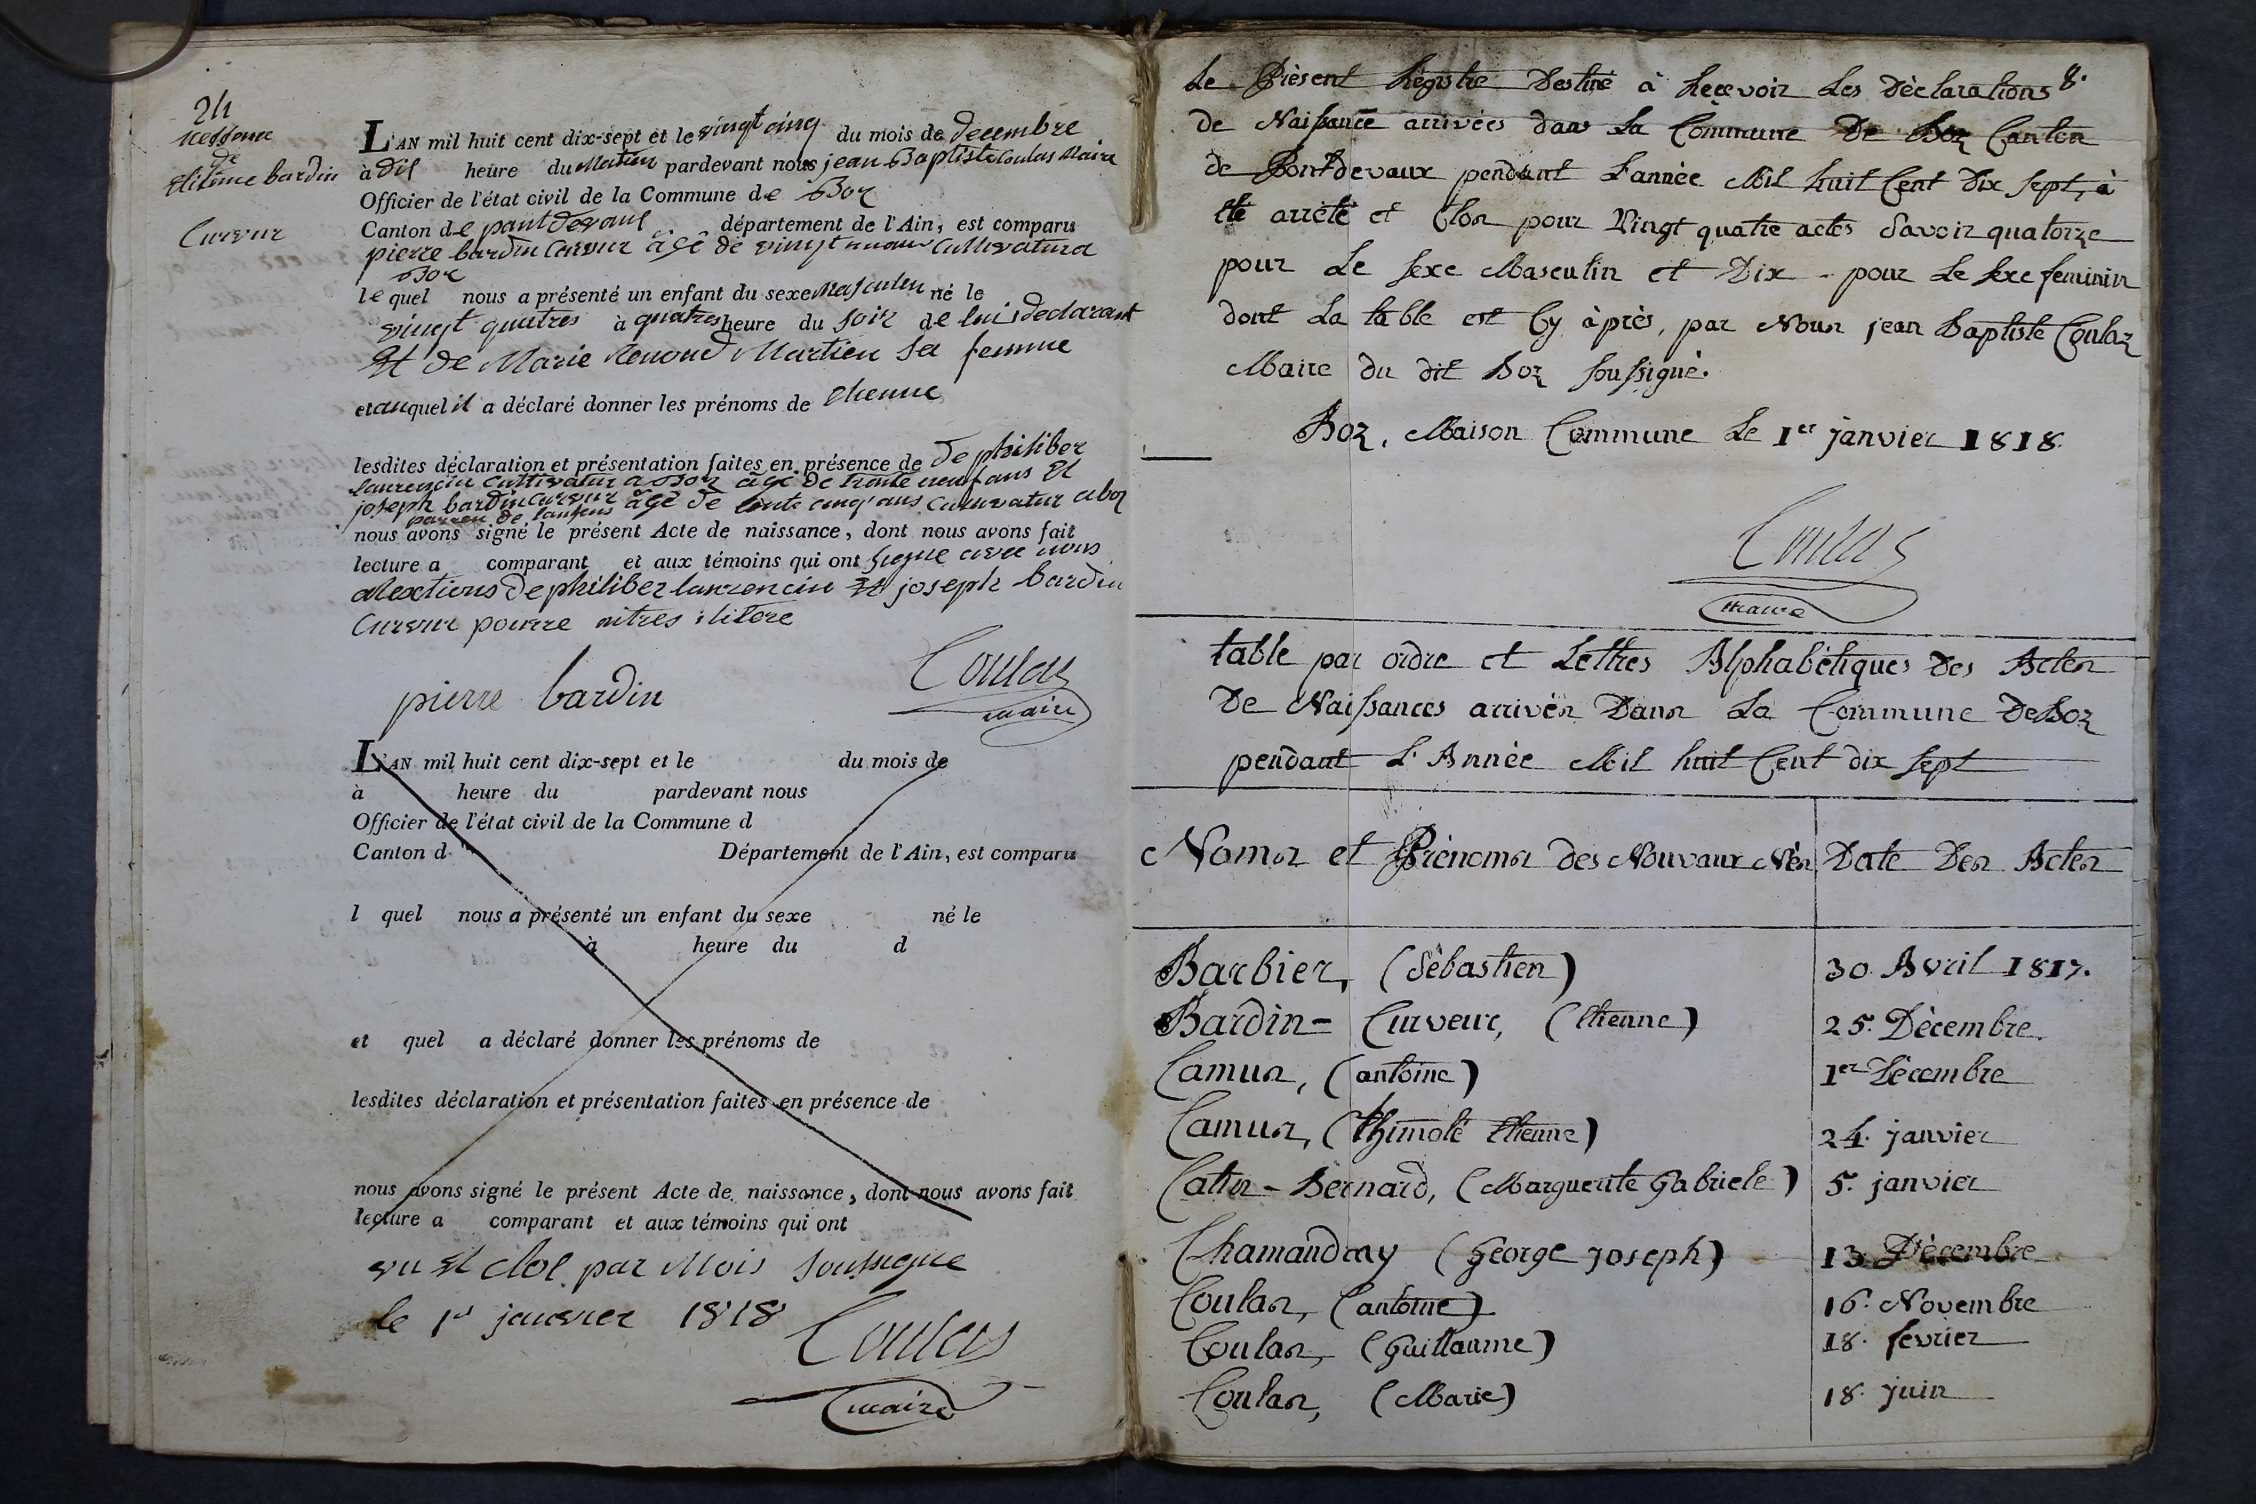 24
nessance
de
Etiênne bardin
Curvur
L'AN mil huit cent dix-sept et le vingt cinq du mois de decembre
à dix heure du Matin pardevant nous jean Baptiste Coulas Maire
Officier de l'état civil de la Commune de Boz
Canton de pont devaux département de l'Ain, est comparu
pierre bardin Curvur âgé de vingt neuf cultivatur a
Boz
le quel nous a présenté un enfant du sexe Masculin né le
vingt quatres à quatres heure du soir de lui declarant
Et de Marie Renoud Martien sa femme
et auquel il a déclaré donner les prénoms de Etienne
lesdites déclaration et présentation faites en présence de De philiber
laurencin cultivatur a Boz âgé de trente neuf ans Et
joseph bardin Curvur âgé de trente cinq ans cultivatur a boz
parren de lanfens
nous avons signé le présent Acte de naissance, dont nous avons fait
lecture a comparant et aux témoins qui ont signe avec nous
alextions de philiber laurencin Et joseph bardin
Curvur pourre nitres ilitere
pierre bardin
Coulas
maire
L'AN mil huit cent dix-sept et le du mois de
à heure du pardevant nous
Officier de l'état civil de la Commune d
Canton d Département de l'Ain, est comparu
l quel nous a présenté un enfant du sexe né le
à heure du d
et quel a déclaré donner les prénoms de
lesdites déclaration et présentation faites en présence de
nous avons signé le présent Acte de naissance, dont nous avons fait
lecture a comparant et aux témoins qui ont
vu Et cloe par Mois soussigne
le 1er janvier 1818
Coulas
maire
8.
Le Prèsent Régistre Destiné à Recevoir Les Dèclarations
de Naissance arrivées dans La Commune De Boz Canton
de Pontdevaux pendant L'année Mil huit Cent Dix Sept, à
été arrêté et Clos pour Vingt quatre actes Savoir quatorze
pour Le Sexe Masculin et Dix pour Le Sexe feminin
dont La table est Cy àprès, par Nous jean Baptiste Coulaz
Maire du dit Boz soussigné.
Boz, Maison Commune Le 1er janvier 1818.
Coulas
maire
table par ordre et Lettres Alphabétiques Des Actes
De Naissances arrivés Dans La Commune De Boz
pendant L'Année Mil huit Cent dix Sept
Noms et Prénoms des Nouvaux Nés Date Des Actes
Barbier, (Sébastien) 30. Avril 1817.
Bardin- Curveur, (Etienne) 25. Décembre.
Camus, (antoine) 1er Décembre
Camus, (thimoté Etienne) 24. janvier
Catin - Bernard, (Marguerite Gabriele) 5. janvier
Chamandray (George joseph) 13 Décembre
Coulas, (antoine) 16. Novembre
Coulas, (Guillaume) 18. fevrier
Coulas, (Marie) 18. juin